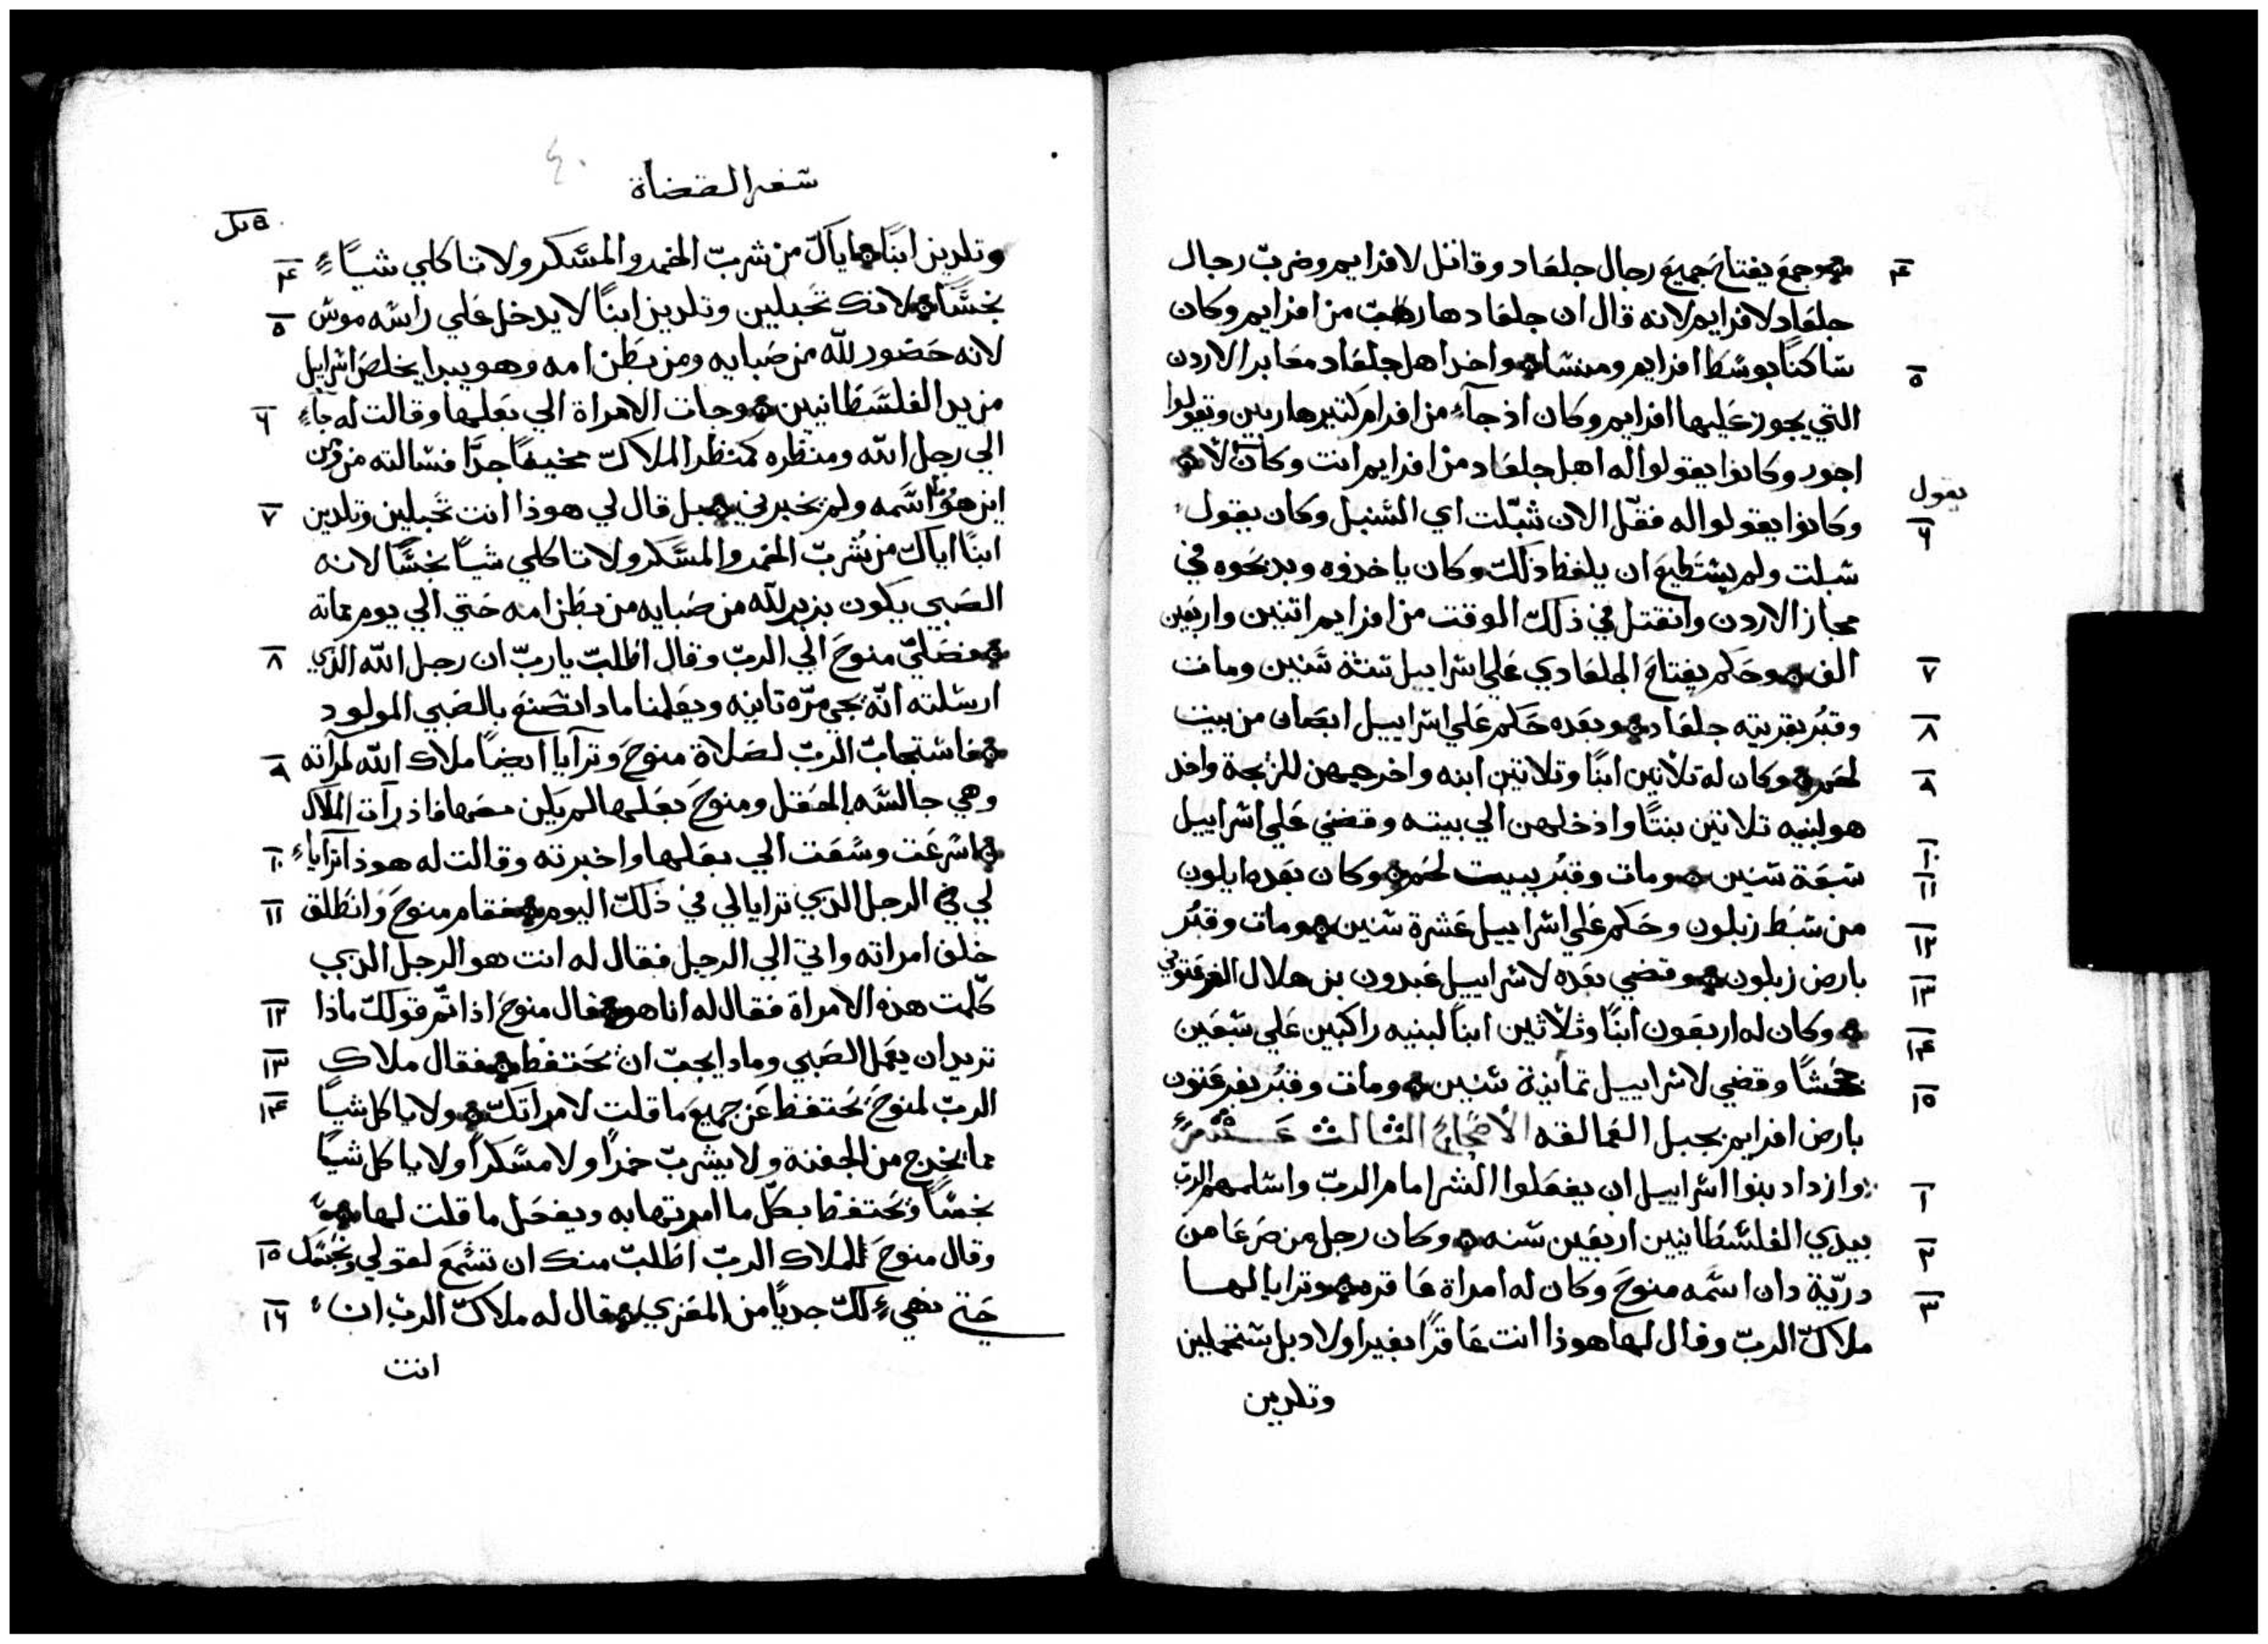 وجمع يفتاح جميع رجال جلعاد وقاتل لافرايم وضرب رجال
٤
جلعاد لافرايم لانه قال ان جلعاد هارب من افرايم وكان
ساكنًا بوسط افرايم ومنشا واخد اهل جلعاد معابر الاردن
٥
التي يجوز عليها افرايم وكان اذ جآء من افرام كتير هاربين وتقولوا
اجوز وكانوا يقولوا له اهل جلعاد من افرايم انت وكان لا
يقول
وكانوا يقولوا له فقل الان شبّلت اي السنبل وكان يقول
٦
سبلت ولم يستطيع ان يلفظ ذلك وكان ياخذوه ويدبحوه في
مجاز الاردن وانقتل في ذلك الوقت من افرايم اتنين واربعين
الف وحكم يفتاح الجلعادي علي اسراييل ستة سنين ومات
٧
وقبُر بقريته جلعاد وبعده حكم علي اسراييل ابصان من بيت
٨
لحم وكان له تلاتين ابنًا وتلاتين ابنه واخرجهن للزيجة واخد
٩
هو لبنيه تلاتين بنتًا وادخلهن الي بيته وقضي علي اسراييل
سبعة سنين ومات وقبُر ببيت لحم وكان بعده ايلون
١٠
١١
من سبط زبلون وحكم علي اسراييل عشرة سنين ومات وقبُر
١٢
بارض زبلون وقضي بعده لاسراييل عبدون بن هلال الفرعتوني
١٣
وكان له اربعون ابنًا وثلاثين ابنًا لبنيه راكبين علي سبعين
١٤
جحشًا وقضي لاسراييل تمانية سنين ومات وقبُر بفرعتون
١٥
بارض افرايم بجبل العمالقه الأصحاح الثالث عشر
وازداد بنوا اسراييل ان يفعلوا الشر امام الرب واسلمهم الرب
١
بيدي الفلسطانيين اربعين سنه وكان رجل من صرعا من
٢
دريّة دان اسمه منوح وكان له امراة عاقره وترايا لها
٣
ملاك الرب وقال لها هوذا انت عاقرًا بغير اولاد بل ستحبلين
وتلدين
٤٠
سفر القضاة
وتلدين ابنًا اياك من شرب الخمر والمسكر ولا تاكلي شيًا
٤
نجسًا لانك تحبلين وتلدين ابنًا لا يدخل علي راسه موس
٥
لانه حضور لله من صبايه ومن بطن امه وهو يبدا يخلص اسراييل
من يد الفلسطانيين وجات الامراة الي بعلها وقالت له جآء
٦
الي رجل الله ومنظره كمنظر الملاك مخيفًا جدًا فسالته من
اين هو اسمه ولم يخبرني بل قال لي هوذا انت تحبلين وتلدين
٧
ابنًا اياك من شرب الخمر والمسكر ولا تاكلي شيًا نجسًا لانه
الصبي يكون بزير لله من صبايه من بطن امه حتي الي يوم مماته
فصلي منوح الي الرب وقال اطلب يا رب ان رجل الله الذي
٨
ارسلته انه يجي مرّه تانيه ويعلمنا مادا نصنع بالصبي المولود
فاستجاب الرب لصلاة منوح وترآيا ايضًا ملاك الله لمرآته
٩
وهي جالسه بالحقل ومنوح بعلها لم يكن معها فاذ رآت الملاك
اسرعت وسعت الي بعلها واخبرته وقالت له هوذا اترايا
١٠
لي الرجل الذي ترايا لي في ذلك اليوم فقام منوح وانطلق
١١
خلف امراته واتي الي الرجل فقال له انت هو الرجل الذي
كلّمت هذه الامراة فقال له انا هو فقال منوح اذا اتم قولك ماذا
١٢
تريد ان يعمل الصبي ومادا يجب ان يحتفظ فقال ملاك
١٣
الرب لمنوح يحتفظ عن جميع ما قلت لامراتك ولا ياكل شيًا
١٤
مما يخرج من الجفنة ولا يشرب خمرًا ولا مسكرًا ولا ياكل شيًا
نجسًا ويحتفظ بكل ما امرتها به ويفعل ما قلت لها
وقال منوح لملاك الرب اطلب منك ان تسمع لقولي
١٥
حتي نهيء لك جديًا من المعزي فقال له ملاك الرب ان
١٦
انت